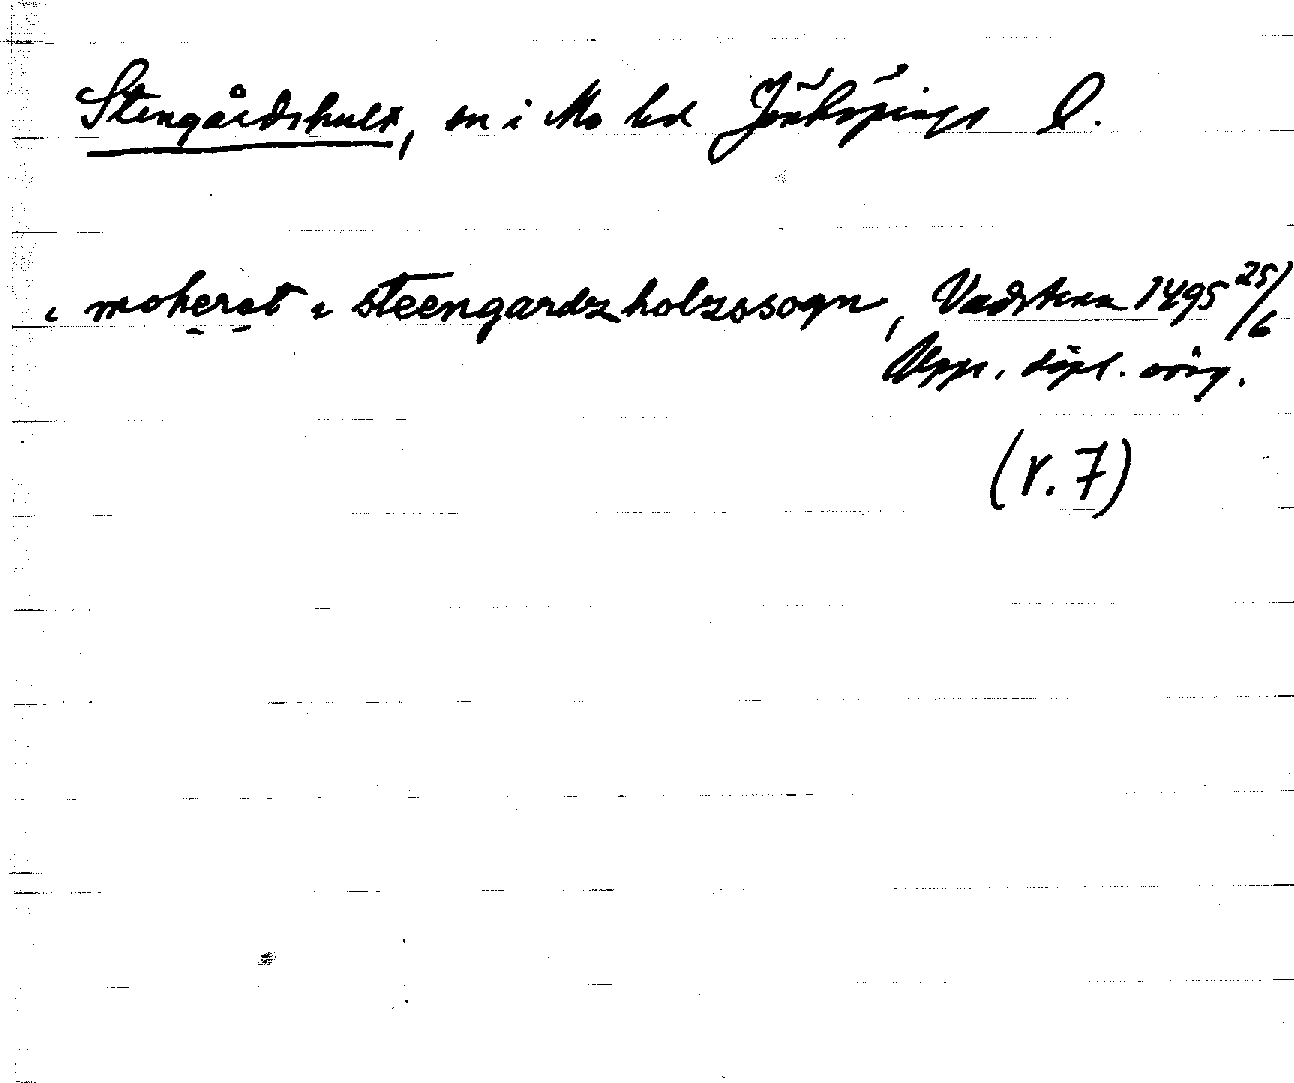 Stengårdshult, sn i Mo hd Jönköpings l.
i moherat i steengardz holzssogn, Vadstena 1495 25/6
Upps. dipl. orig.
(r. 7)